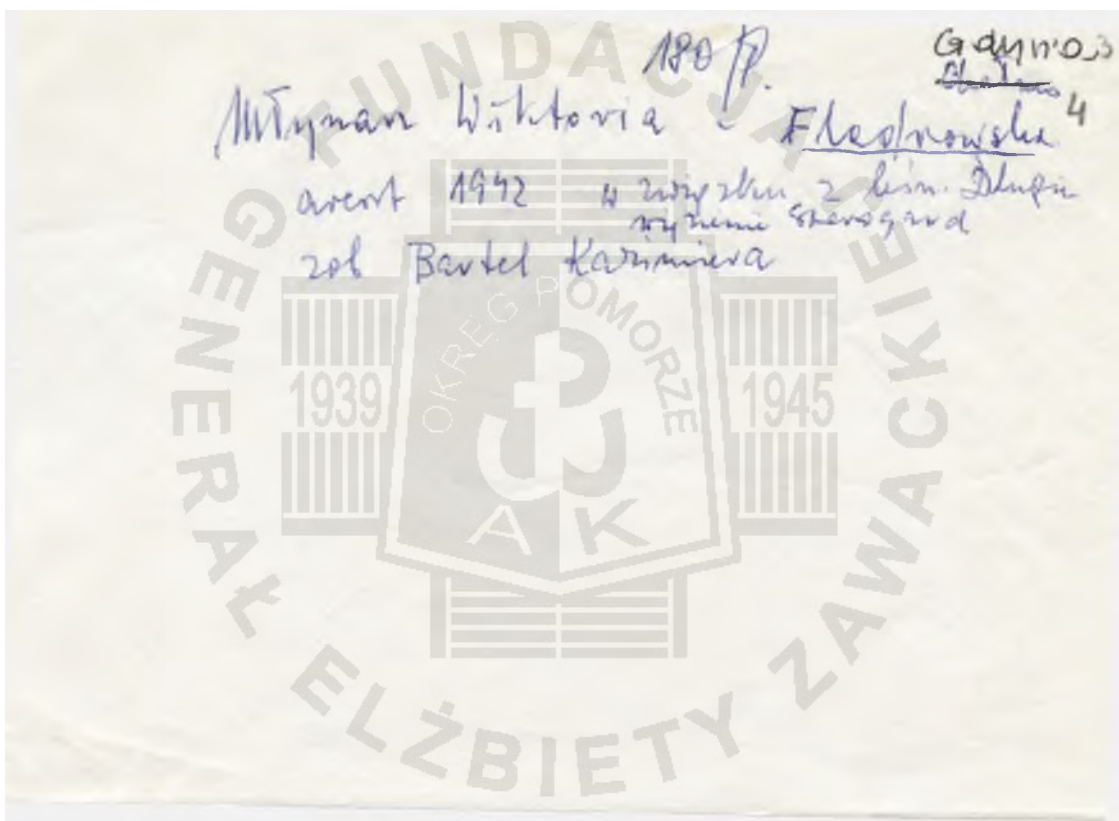 180/P.
Gdynia 3
4
Młynarz Wiktoria - Fladrowska
areszt 1942 w związku z leśn. Długie
Starogard
zob Bartel Kazimiera
FUNDACJA
GENERAŁ ELŻBIETY ZAWACKIEJ
OKRĘG POMORZE
1939
1945
AK